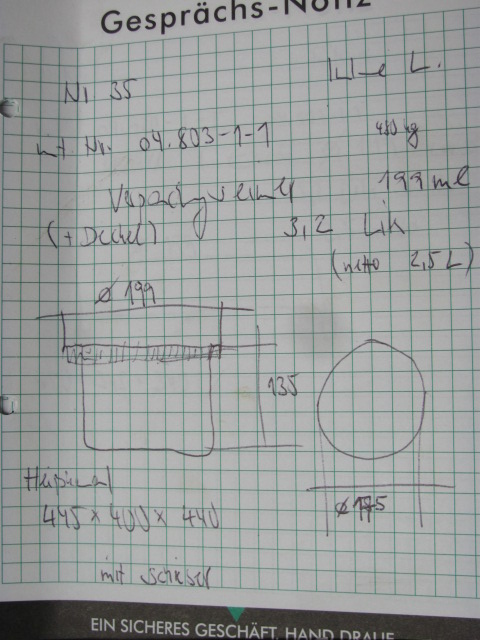 Gesprächs-Notiz
L.
NI 35
Nr. 04.803-1-1
480 kg
199 ml
(+ Deckel)
3,2
(netto 2,5 L)
ø 199
135
ø 175
445 × 400 × 440
mit Schieber
EIN SICHERES GESCHÄFT, HAND DRAUF